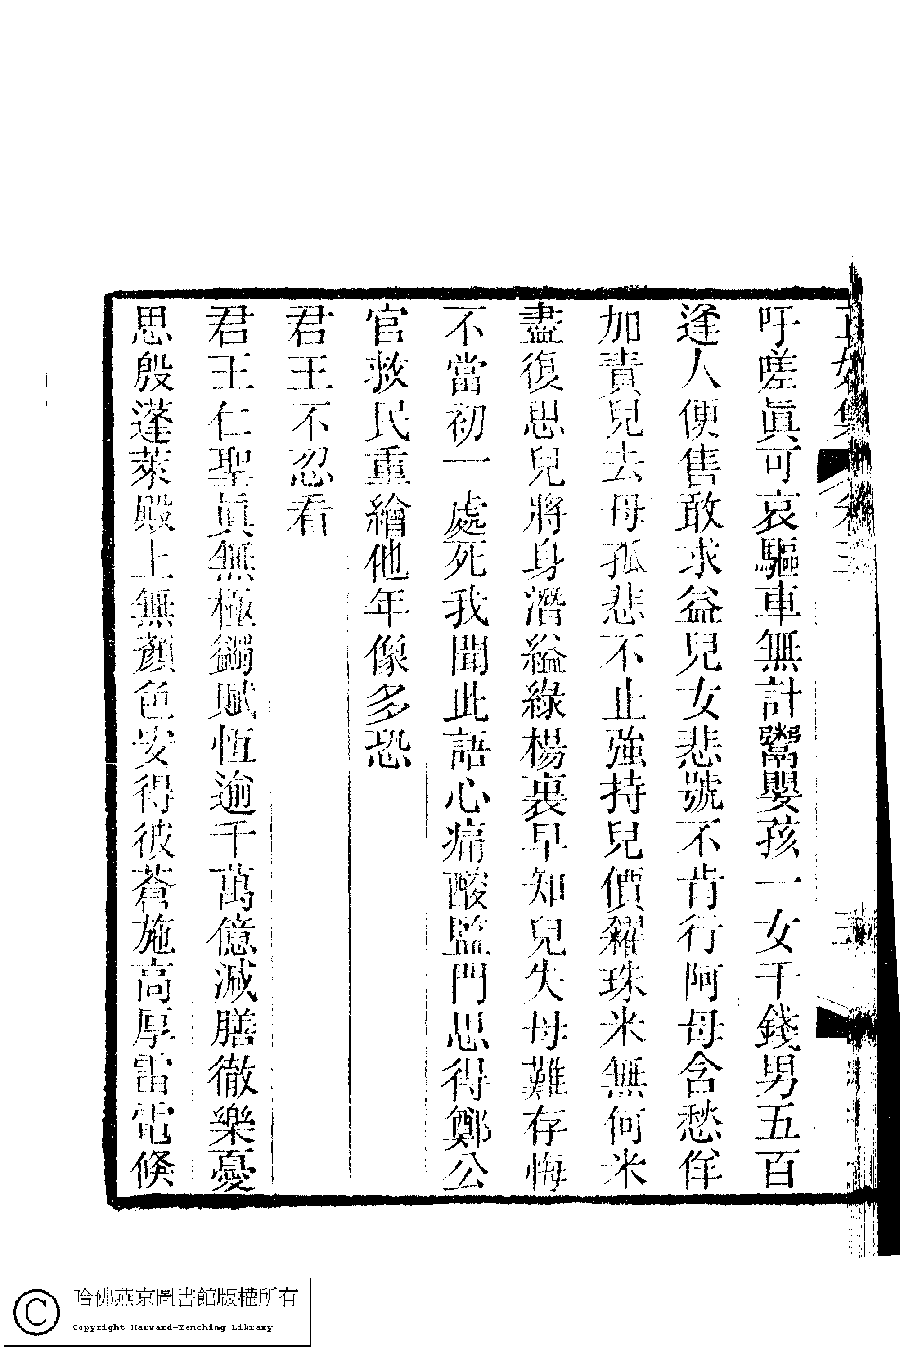 吁嗟眞可哀驅車無計鬻嬰孩一女千錢男五百
逢人便售敢求益兒女悲號不肯行阿母含愁佯
加責兒去母孤悲不止強持兒價糴珠米無何米
盡復思兒將身潛縊綠楊裏早知兒失母難存悔
不當初一處死我聞此語心痛酸監門思得鄭公
官救民重繪他年像多恐
君王不忍看
君王仁聖眞無極蠲賦恆逾千萬億減膳徹樂憂
思殷蓬萊殿上無顏色安得彼蒼施高厚雷電倏
哈佛燕京圖書館版權所有
Copyright Harvard-Yenching Library